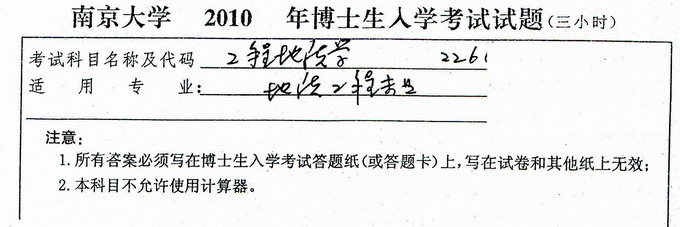 南京大学 2010 年博士生入学考试试题(三小时)
考试科目名称及代码 工程地质学 2261
适用专业: 地质工程专业
注意:
1.所有答案必须写在博士生入学考试答题纸(或答题卡)上,写在试卷和其他纸上无效;
2.本科目不允许使用计算器。